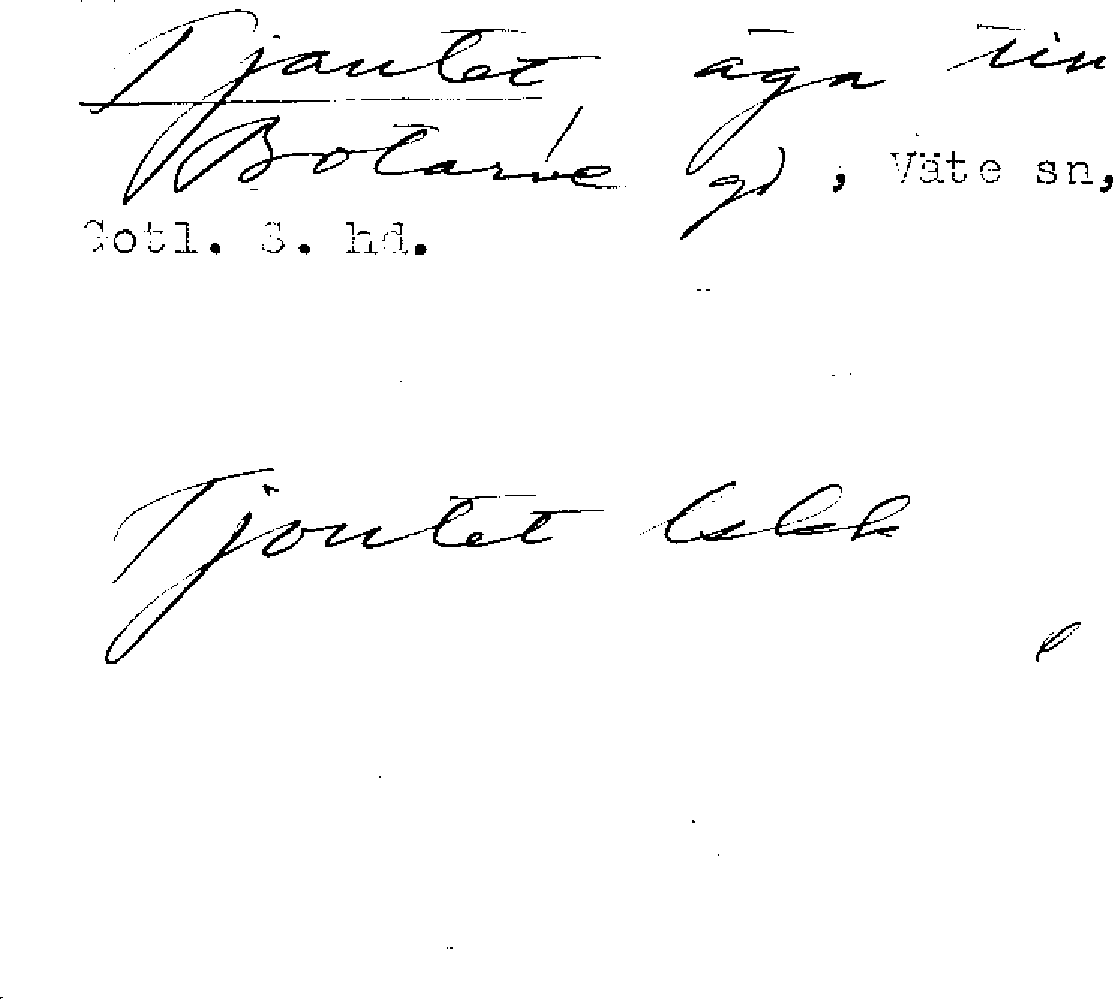 Tjautet äga tin
Botarve gd, Väte sn,
Gotl. S. hd.
Tjoutet